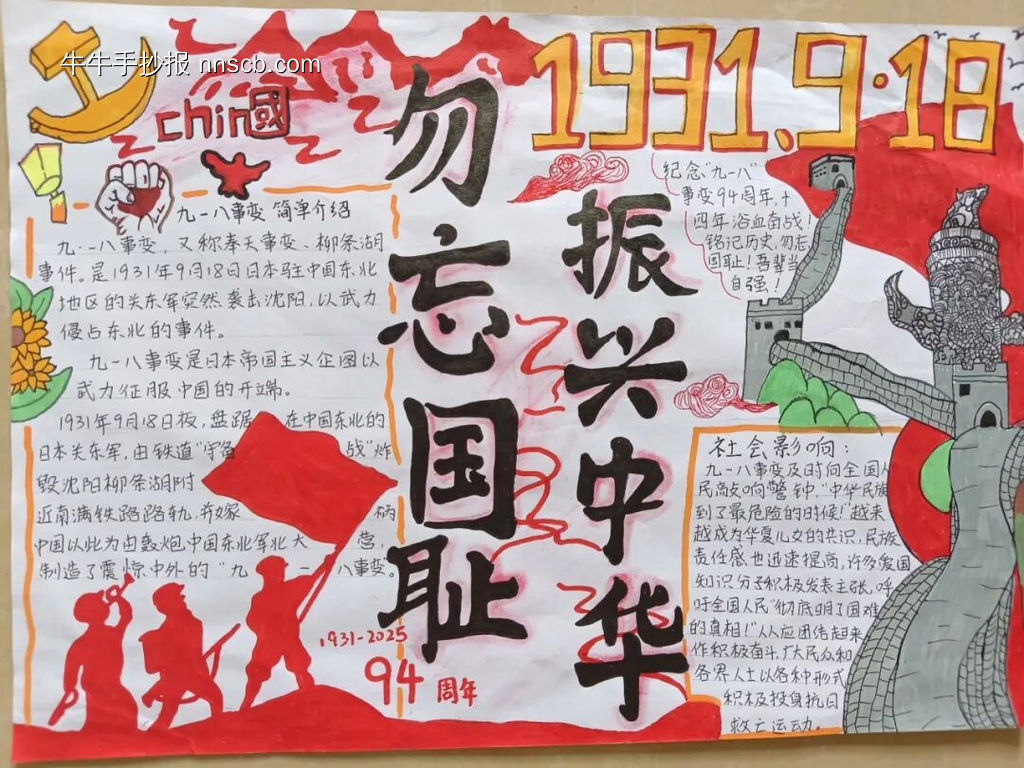 牛牛手抄报 nnscb.com
chin國
1931.9·18
勿忘国耻
振兴中华
九一八事变 简单介绍
九·一八事变，又称奉天事变、柳条湖
事件。是1931年9月18日日本驻中国东北
地区的关东军突然袭击沈阳，以武力
侵占东北的事件。
九一八事变是日本帝国主义企图以
武力征服中国的开端。
1931年9月18日夜，盘踞在中国东北的
日本关东军，由铁道"守备战"炸
毁沈阳柳条湖附
近南满铁路路轨，并嫁柄
中国以此为由轰炮中国东北军北大营，
制造了震惊中外的"九一八事变。
1931-2025
94周年
纪念"九一八"
事变94周年，十
四年浴血奋战！
铭记历史，勿忘
国耻！吾辈当
自强！
社会影响：
九一八事变及时向全国人
民敲响警钟，"中华民族
到了最危险的时候！"越来
越成为华夏儿女的共识，民族
责任感也迅速提高，许多爱国
知识分子积极发表主张，呼
吁全国人民"彻底明了国难
的真相！"人人应团结起来
作积极奋斗，广大民众和
各界人士以各种形式
积极投身抗日
救亡运动。